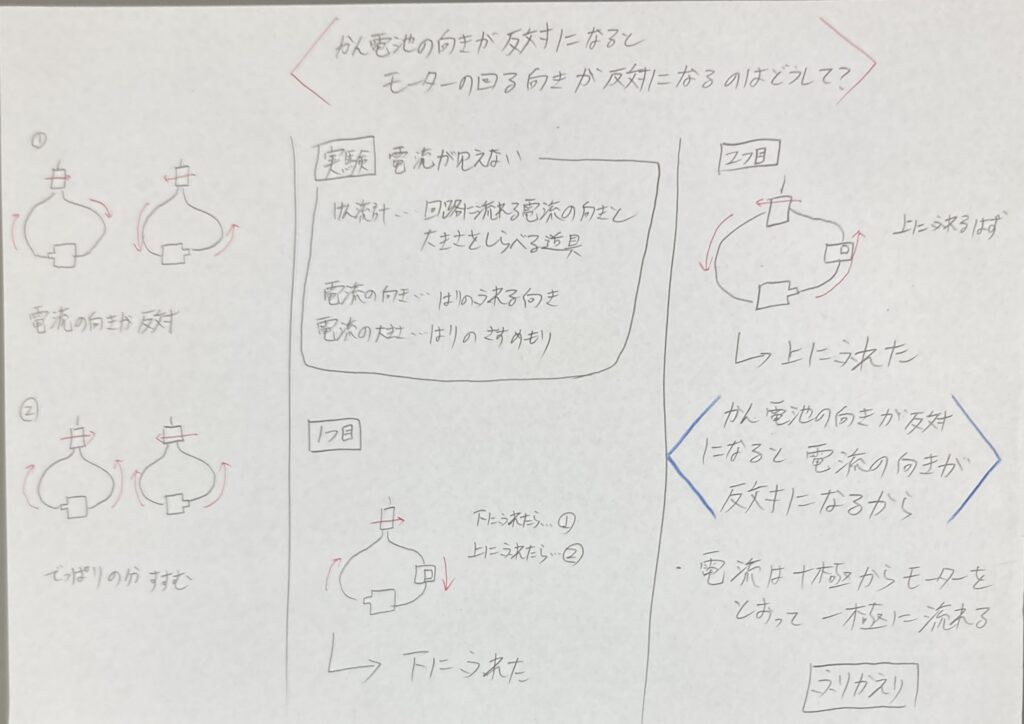 かん電池の向きが反対になると
モーターの回る向きが反対になるのはどうして?
①
電流の向きが反対
②
でっぱりの方すすむ
実験 電流が見えない
けん流計… 回路に流れる電流の向きと
大きさをしらべる道具
電流の向き… はりのふれる向き
電流の大きさ…はりのさすめもり
1つ目
下にふれたら…①
上にふれたら…②
下にふれた
2つ目
上にふれるはず
上にふれた
かん電池の向きが反対
になると 電流の向きが
反対になるから
・電流は+極からモーターを
とおって-極に流れる
ふりかえり